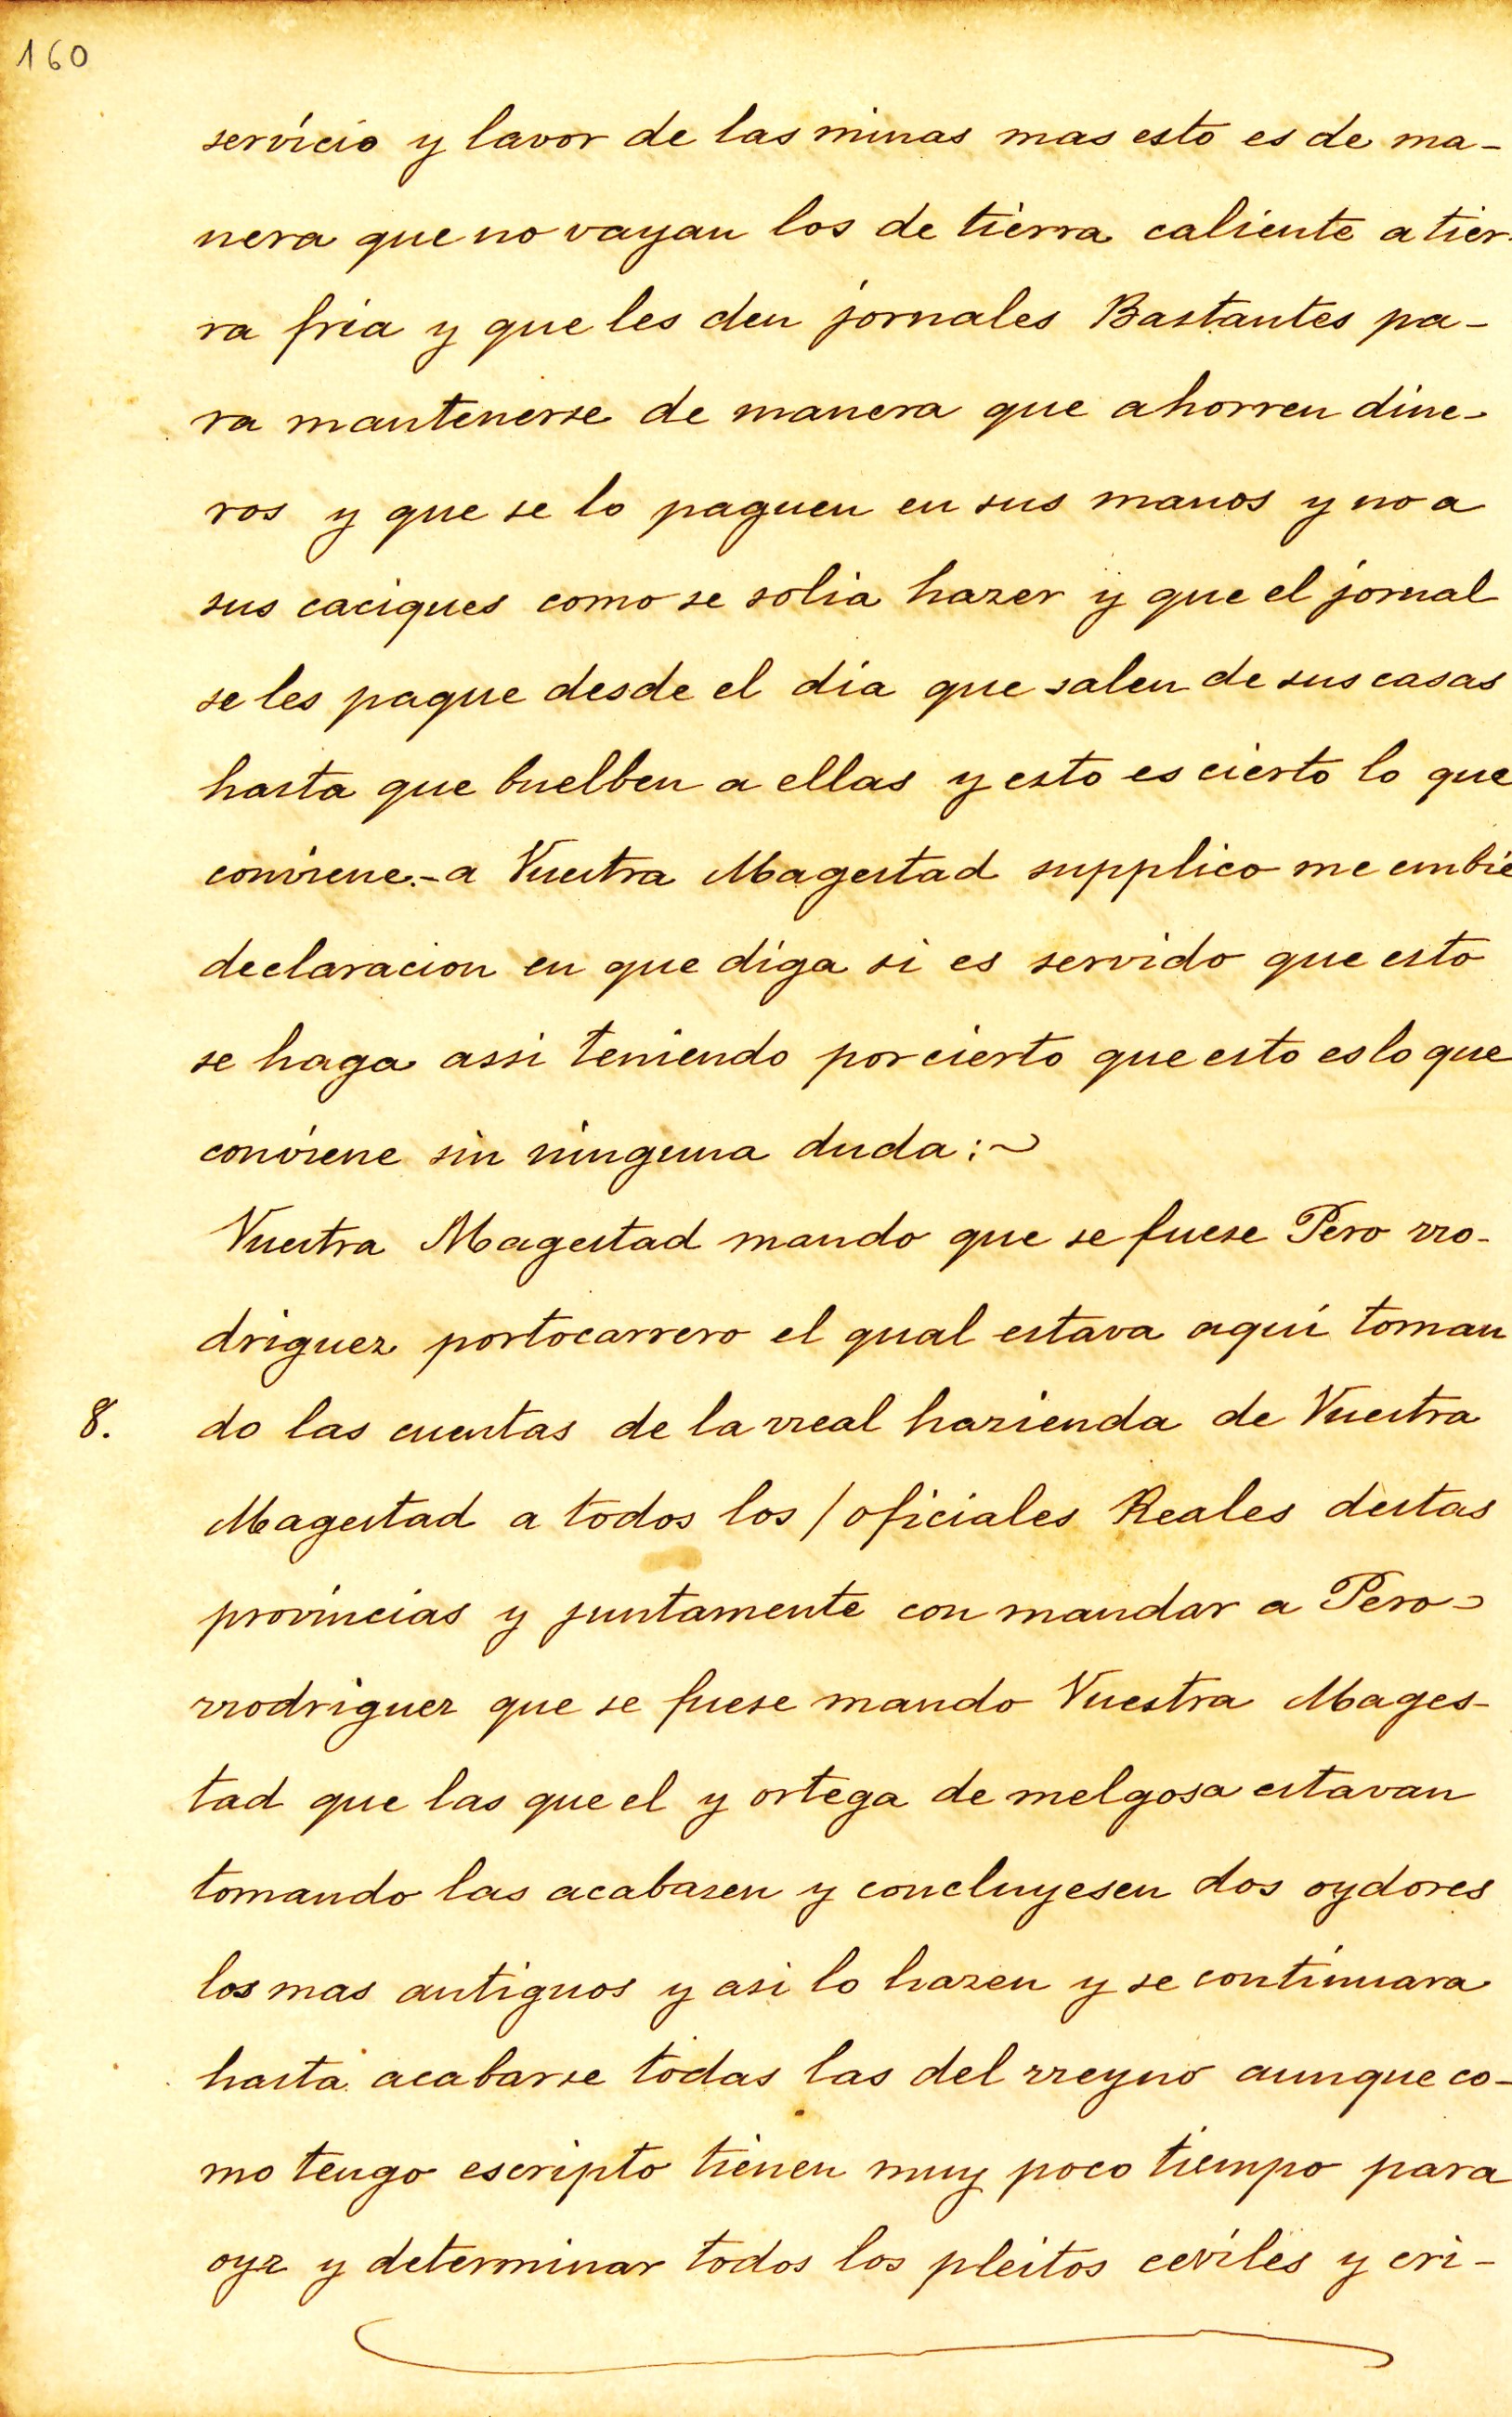 160
servicio y lavor de las minas mas esto es de ma-
nera que no vayan los de tierra caliente a tier-
ra fria y que les den jornales Bastantes pa-
ra mantenerse de manera que ahorren dine-
ros y que se lo paguen en sus manos y no a
sus caciques como se solia hazer y que el jornal
se les pague desde el dia que salen de sus casas
hasta que buelben a ellas y esto es cierto lo que
conviene.- a Vuestra Magestad supplico me embie
declaracion en que diga si es servido que esto
se haga assi teniendo por cierto que esto es lo que
conviene sin ninguna duda:~
Vuestra Magestad mando que se fuese Pero rro-
driguez portocarrero el qual estava aqui toman
8. do las cuentas de la rreal hazienda de Vuestra
Magestad a todos los / oficiales Reales destas
provincias y juntamente con mandar a Pero-
rrodriguez que se fuese mando Vuestra Mages-
tad que las que el y ortega de melgosa estavan
tomando las acabasen y concluyesen dos oydores
los mas antiguos y asi lo hazen y se continuara
hasta acabarse todas las del rreyno aunque co-
mo tengo escripto tienen muy poco tiempo para
oyr y determinar todos los pleitos ceviles y cri-